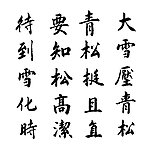 大雪壓青松
青松挺且直
要知松高潔
待到雪化時